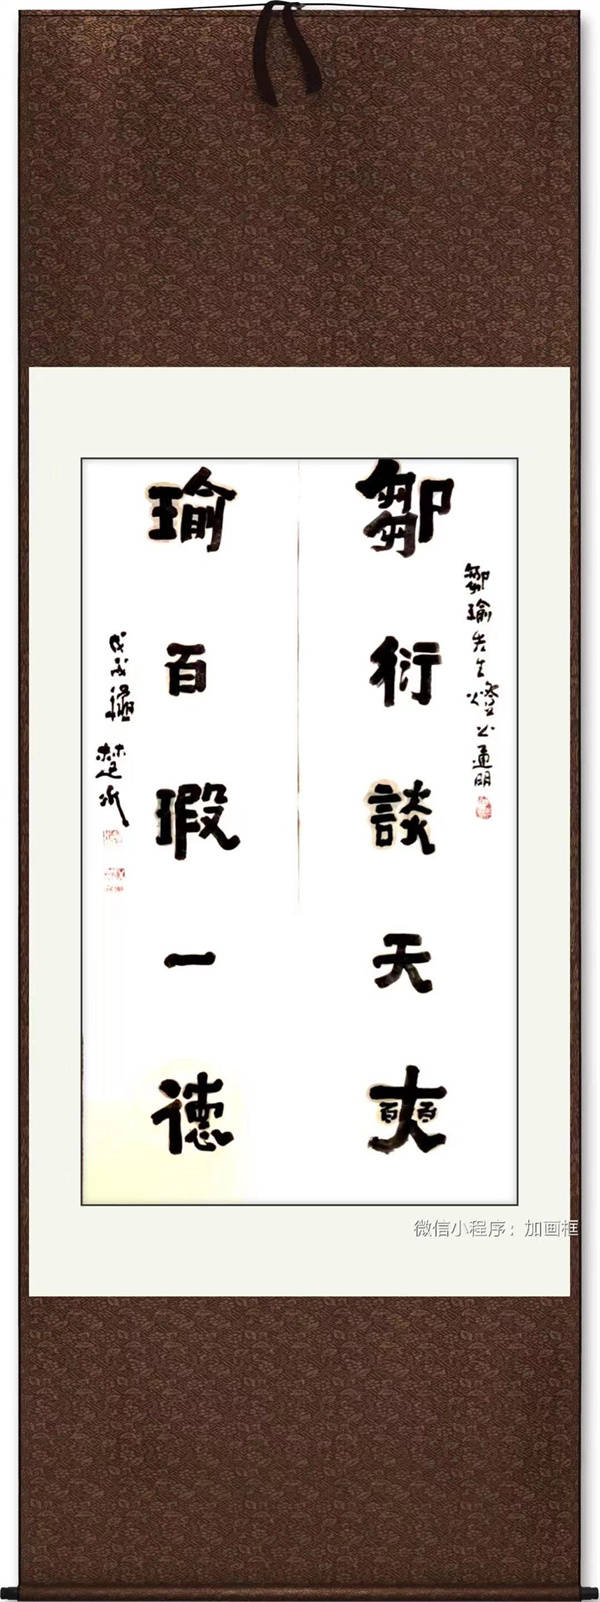 鄒瑜先生
明
鄒衍談天奭
瑜百瑕一德
戊戌
微信小程序：加画框